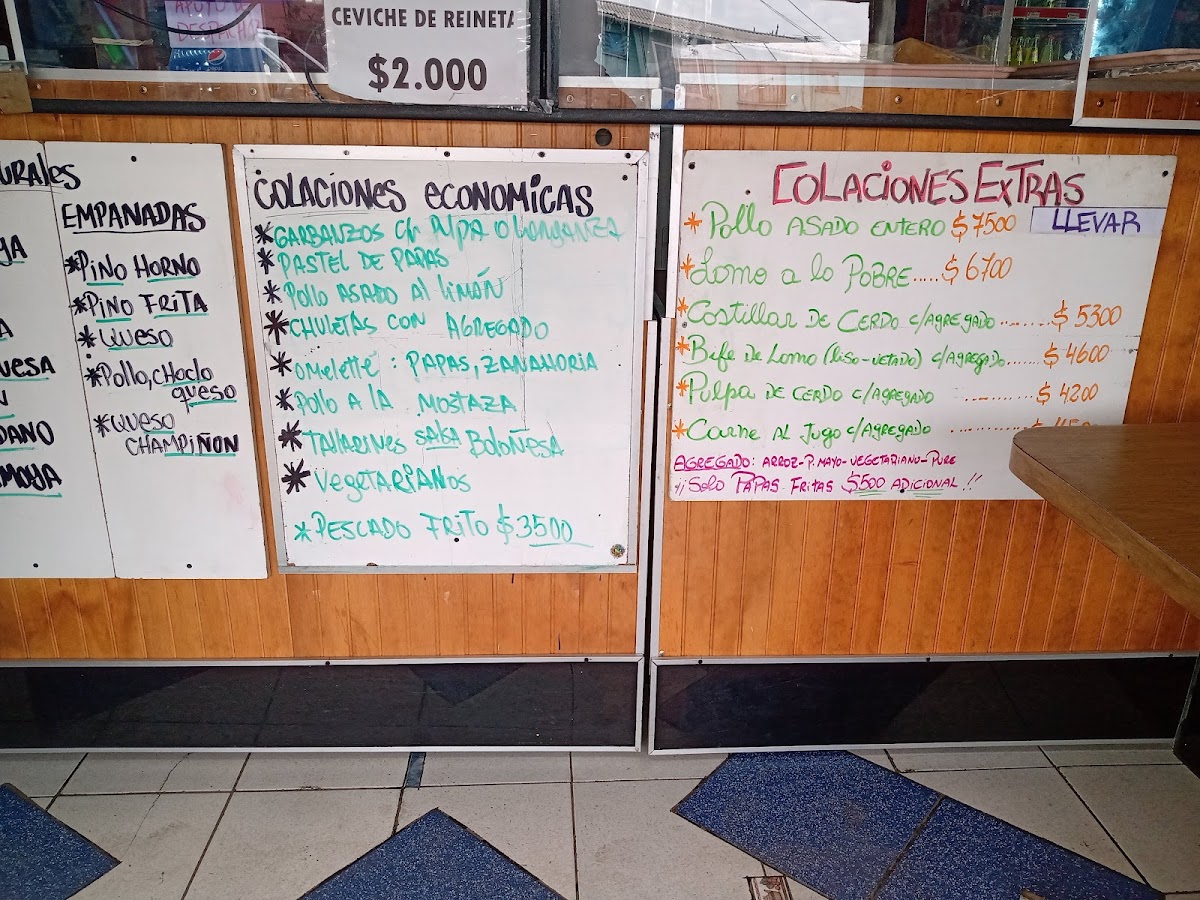 APOYO DE
CEVICHE DE REINETA
$2.000
URALES
EMPANADAS
*PINO HORNO
*PINO FRITA
*QUESO
*POLLO, CHOCLO
QUESO
*QUESO
CHAMPIÑON
COLACIONES ECONOMICAS
*GARBANZOS C/ PULPA O LONGANIZA
*PASTEL DE PAPAS
*POLLO ASADO AL LIMÓN
*CHULETAS CON AGREGADO
*OMELETTE: PAPAS, ZANAHORIA
*POLLO A LA MOSTAZA
*TALLARINES SALSA BOLOÑESA
*VEGETARIANOS
*PESCADO FRITO $3500
COLACIONES EXTRAS
*POLLO ASADO ENTERO $7500 LLEVAR
*LOMO A LO POBRE..... $6700
*COSTILLAR DE CERDO C/AGREGADO ........ $5300
*BIFE DE LOMO (LISO-VETADO) C/AGREGADO...... $4600
*PULPA DE CERDO C/AGREGADO ........... $4200
*CARNE AL JUGO C/AGREGADO ...........
AGREGADO: ARROZ-P.MAYO-VEGETARIANO-PURE
¡¡SOLO PAPAS FRITAS $500 ADICIONAL!!